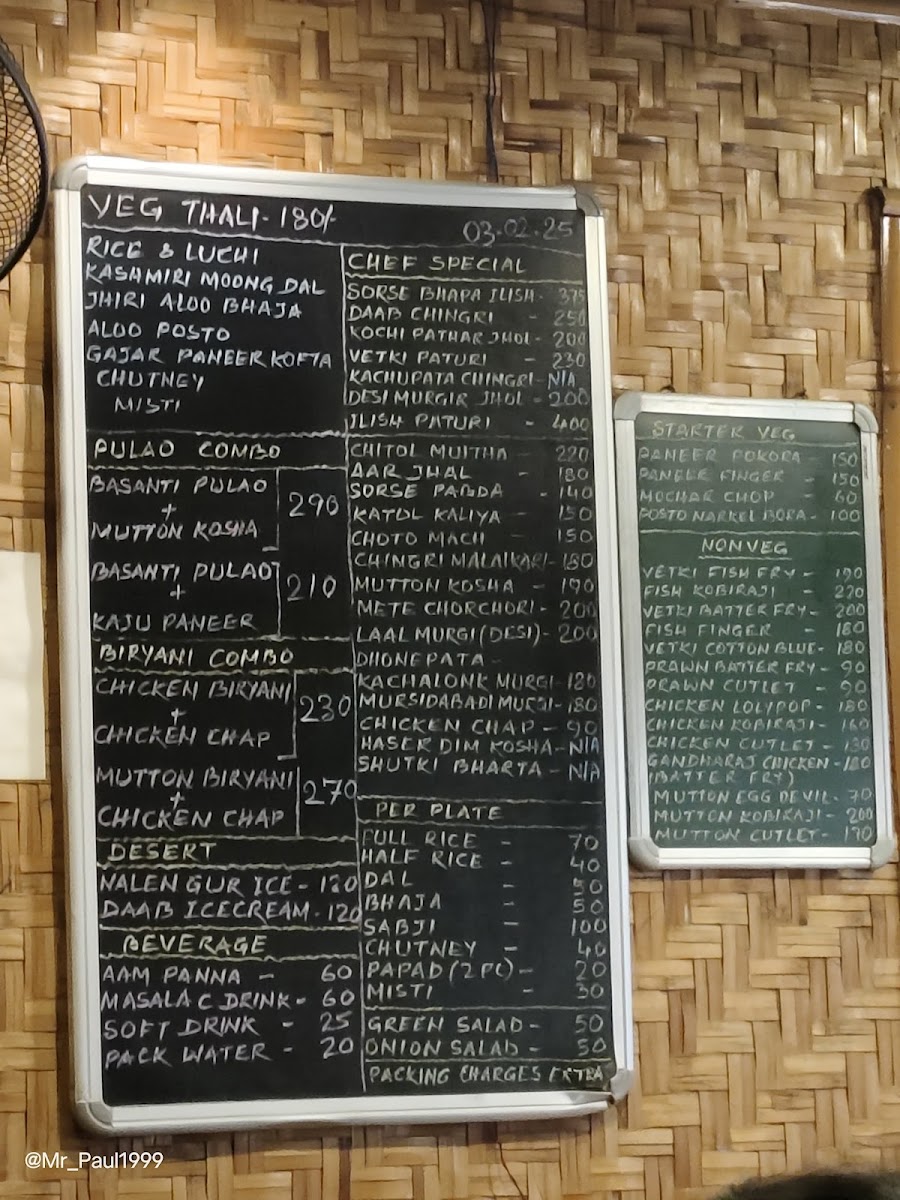 VEG THALI - 180/-
03.02.25
RICE & LUCHI
KASHMIRI MOONG DAL
JHIRI ALOO BHAJA
ALOO POSTO
GAJAR PANEER KOFTA
CHUTNEY
MISTI
PULAO COMBO
BASANTI PULAO
+
MUTTON KOSHA
290
BASANTI PULAO
+
KAJU PANEER
210
BIRYANI COMBO
CHICKEN BIRYANI
+
CHICKEN CHAP
230
MUTTON BIRYANI
+
CHICKEN CHAP
270
DESERT
NALEN GUR ICE - 120
DAAB ICECREAM - 120
BEVERAGE
AAM PANNA - 60
MASALA C DRINK - 60
SOFT DRINK - 25
PACK WATER - 20
CHEF SPECIAL
SORSE BHAPA ILISH - 375
DAAB CHINGRI - 250
KOCHI PATHAR JHOL - 200
VETKI PATURI - 230
KACHUPATA CHINGRI - N/A
DESI MURGIR JHOL - 200
ILISH PATURI - 400
CHITOL MUITHA - 220
AAR JHAL - 180
SORSE PABDA - 140
KATOL KALIYA - 150
CHOTO MACH - 150
CHINGRI MALAIKARI - 180
MUTTON KOSHA - 190
METE CHORCHORI - 200
LAAL MURGI (DESI) - 200
DHONEPATA -
KACHALONK MURGI - 180
MURSIDABADI MURGI - 180
CHICKEN CHAP - 90
HASER DIM KOSHA - N/A
SHUTKI BHARTA - N/A
PER PLATE
FULL RICE - 70
HALF RICE - 40
DAL - 50
BHAJA - 50
SABJI - 100
CHUTNEY - 40
PAPAD (2 PC) - 20
MISTI - 30
GREEN SALAD - 50
ONION SALAD - 50
PACKING CHARGES EXTRA
STARTER VEG
PANEER POKORA - 150
PANEER FINGER - 150
MOCHAR CHOP - 60
POSTO NARKEL BORA - 100
NONVEG
VETKI FISH FRY - 190
FISH KOBIRAJI - 220
VETKI BATTER FRY - 200
FISH FINGER - 180
VETKI COTTON BLUE - 180
PRAWN BATTER FRY - 90
PRAWN CUTLET - 90
CHICKEN LOLYPOP - 180
CHICKEN KOBIRAJI - 160
CHICKEN CUTLET - 130
GANDHARAJ CHICKEN - 180
(BATTER FRY)
MUTTON EGG DEVIL - 70
MUTTON KOBIRAJI - 200
MUTTON CUTLET - 170
@Mr_Paul1999